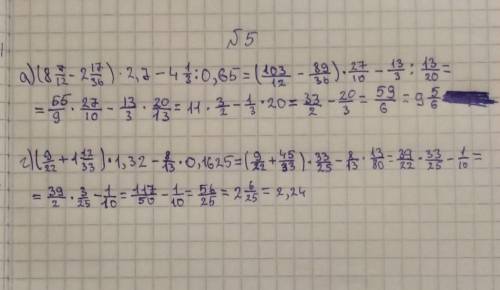 №5
а) (8 7/12 - 2 17/36) · 2,7 - 4 1/3 : 0,65 = (103/12 - 89/36) · 27/10 - 13/3 : 13/20 =
= 55/9 · 27/10 - 13/3 · 20/13 = 11 · 3/2 - 1/3 · 20 = 33/2 - 20/3 = 59/6 = 9 5/6
г) (9/22 + 1 12/33) · 1,32 - 8/13 · 0,1625 = (9/22 + 45/33) · 33/25 - 8/13 · 13/80 = 39/22 · 33/25 - 1/10 =
= 39/2 · 3/25 - 1/10 = 117/50 - 1/10 = 56/25 = 2 6/25 = 2,24